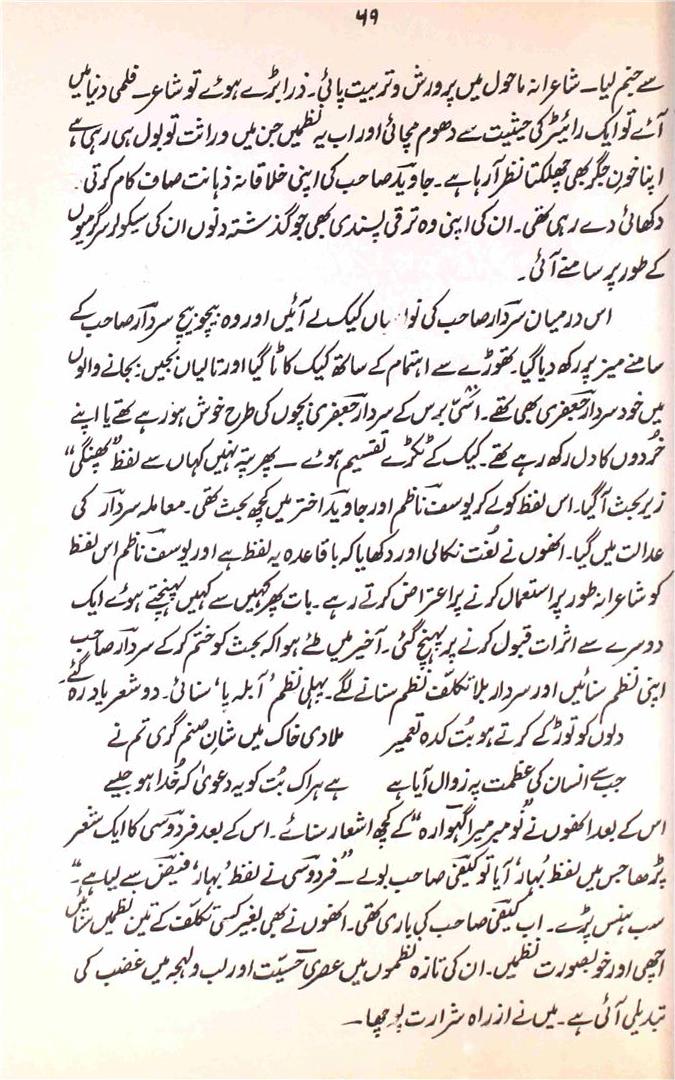 ۶۹
سے جنم لیا۔ شاعرانہ ماحول میں پرورش و تربیت پائی۔ ذرا بڑے ہوئے تو شاعر۔ فلمی دنیا میں
آئے تو ایک رائیٹر کی حیثیت سے دھوم مچائی اور اب یہ نظمیں جن میں وراثت تو بول ہی رہی ہے
اپنا خونِ جگر بھی چھلکتا نظر آرہا ہے۔ جاوید صاحب کی اپنی خلاقانہ ذہانت صاف کام کرتی
دکھائی دے رہی تھی۔ ان کی اپنی وہ ترقی پسندی بھی جو گذشتہ دنوں ان کی سیکولر سرگرمیوں
کے طور پر سامنے آئی۔
اس درمیان سردار صاحب کی کیک لے آئیں اور وہ بیچو بیچ سردار صاحب کے
سامنے میز پر رکھ دیا گیا۔ تھوڑے سے اہتمام کے ساتھ کیک کاٹا گیا اور تالیاں بجیں۔ بجانے والوں
میں خود سردار جعفری بھی تھے۔ اسّی برس کے سردار جعفری بچوں کی طرح خوش ہو رہے تھے یا اپنے
خُردوں کا دل رکھ رہے تھے۔ کیک کے ٹکڑے تقسیم ہوئے — پھر پتہ نہیں کہاں سے لفظ ”پھنگی“
زیر بحث آگیا۔ اس لفظ کو لے کر یوسف ناظم اور جاوید اختر میں کچھ بحث تھی۔ معاملہ سردار کی
عدالت میں گیا۔ انھوں نے لُغت نکالی اور دکھایا کہ باقاعدہ یہ لفظ ہے اور یوسف ناظم اس لفظ
کو شاعرانہ طور پر استعمال کرنے پر اعتراض کرتے رہے۔ بات پھر کہیں سے کہیں پہنچتے ہوئے ایک
دوسرے سے اثرات قبول کرنے پر پہنچ گئی۔ آخیر میں طے ہوا کہ بحث کو ختم کر کے سردار صاحب
اپنی نظم سنائیں اور سردار بلا تکلف نظم سنانے لگے۔ پہلی نظم ’آبلہ پا‘ سنائی۔ دو شعر یاد رہ گئے۔
دلوں کو توڑ کے کرتے ہو بُت کدہ تعمیر ملادی خاک میں شانِ صنم گری تم نے
جب سے انسان کی عظمت پہ زوال آیا ہے ہے ہر اک بُت کو یہ دعویٰ کہ خُدا ہو جیسے
اس کے بعد انھوں نے ”نومبر میرا گہوارہ“ کے کچھ اشعار سنائے۔ اس کے بعد فردوسی کا ایک شعر
پڑھا جس میں لفظ ’بہار‘ آیا تو کیفی صاحب بولے — ”فردوسی نے لفظ ’بہار‘ فیض سے لیا ہے۔“
سب ہنس پڑے۔ اب کیفی صاحب کی باری تھی۔ انھوں نے بھی بغیر کسی تکلف کے تین نظمیں سنائیں
اچھی اور خوبصورت نظمیں۔ ان کی تازہ نظموں میں عصری حسیّت اور لب و لہجہ میں غضب کی
تبدیلی آئی ہے۔ میں نے از راہ شرارت پوچھا۔